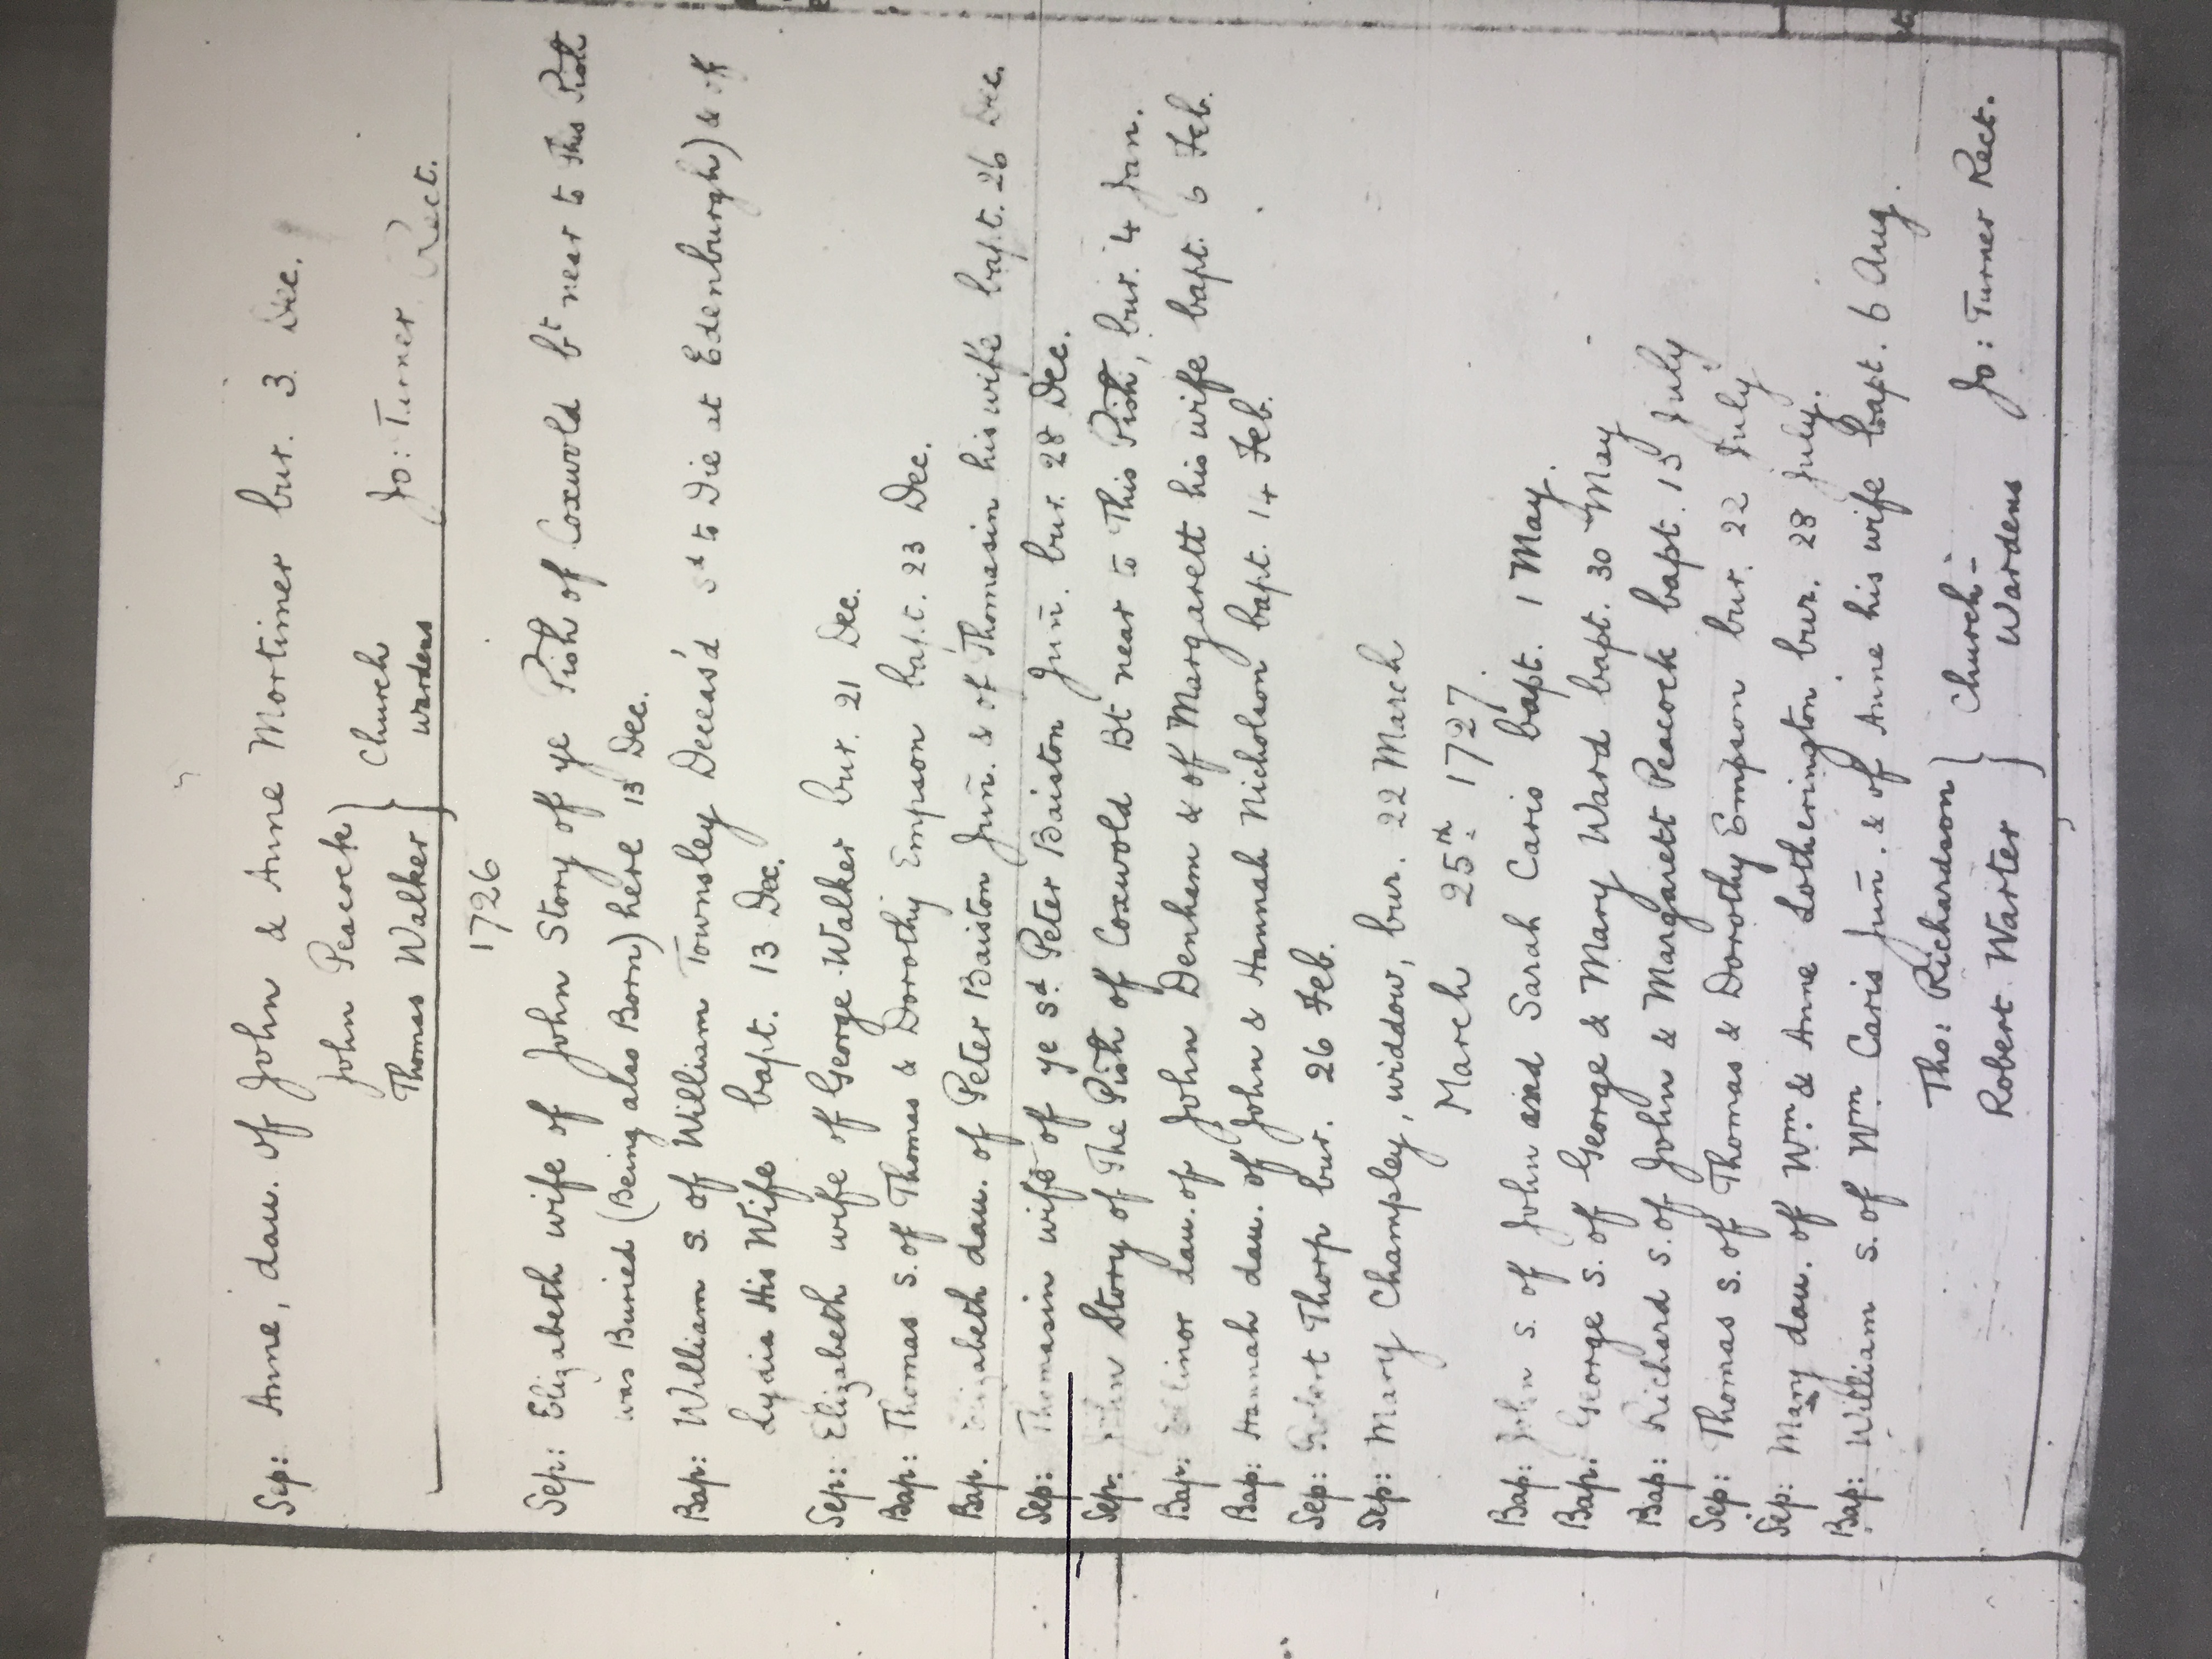 Sep: Anne, dau. of John & Anne Mortimer bur. 3 Dec.
John Peacock } Church
Thomas Walker } wardens Jo: Turner Rect.
1726
Sep: Elizabeth wife of John Story of ye Pish of Coxwold bt near to This Pish
was Buried (Being also Born) here 13 Dec.
Bap: William s. of William Townsley Deceas'd sd to Die at Edenburgh) & of
Lydia His Wife bapt. 13 Dec.
Sep: Elizabeth wife of George Walker bur. 21 Dec.
Bap: Thomas s. of Thomas & Dorothy Empson bapt. 23 Dec.
Bap. Elizabeth dau. of Peter Baiston Jun. & of Thomasin his wife bapt. 26 Dec.
Sep: Thomasin wife of ye sd. Peter Baiston Jun. bur. 28 Dec.
Sep. John Story of The Pish of Coxwold Bt near to This Pish, bur. 4 Jan.
Bap: Ellinor dau. of John Denham & of Margarett his wife bapt. 6 Feb.
Bap: Hannah dau. of John & Hannah Nicholson bapt. 14 Feb.
Sep: Robert Thorp bur. 26 Feb.
Sep: Mary Champley, widdow, bur. 22 March
March 25th 1727.
Bap: John s. of John and Sarah Caris bapt. 1 May.
Bap: George s. of George & Mary Ward bapt. 30 May
Bap: Richard s. of John & Margarett Peacock bapt. 13 July
Sep: Thomas s. of Thomas & Dorothy Empson bur. 22 July
Sep: Mary dau. of Wm. & Anne Lotherington bur. 28 July.
Bap: William s. of Wm. Caris Jun. & of Anne his wife bapt. 6 Aug.
Tho: Richardson } Church-
Robert Warter } Wardens Jo: Turner Rect.